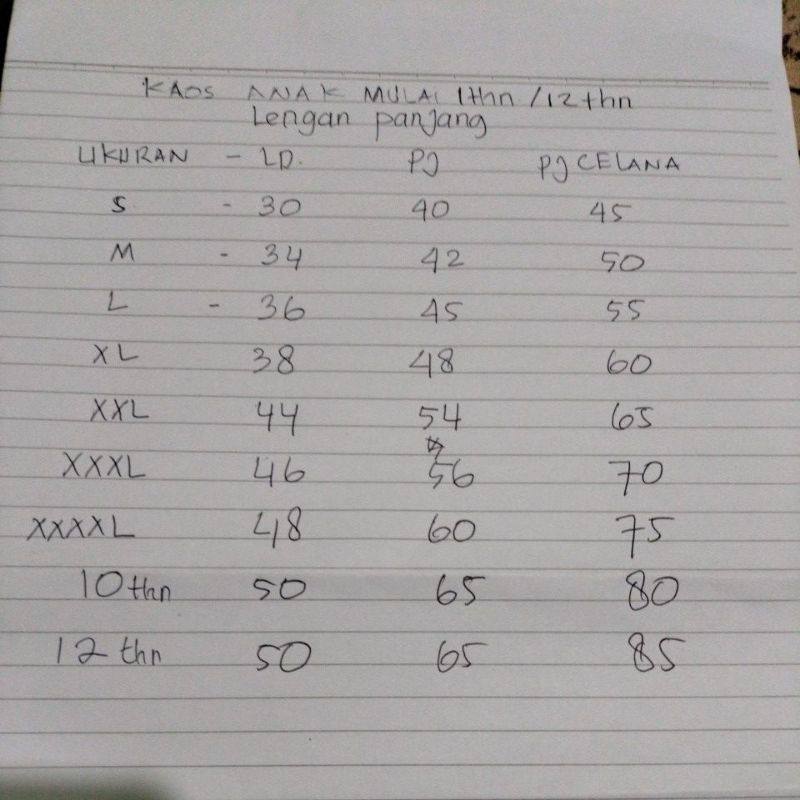 KAOS ANAK MULAI 1thn /12 thn
Lengan panjang
UKURAN - LD. PJ PJ CELANA
S - 30 40 45
M - 34 42 50
L - 36 45 55
XL 38 48 60
XXL 44 54 65
XXXL 46 56 70
XXXXL 48 60 75
10 thn 50 65 80
12 thn 50 65 85